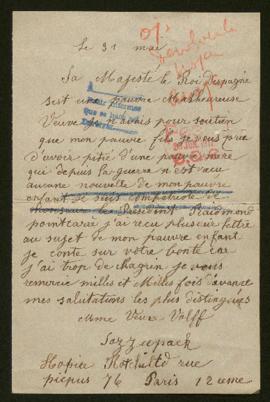 le 31 mai
Sa Majesté le Roi despagne
sest une pauvre Malheureuse
Veuve je navais pour soutien
que mon pauvre fils je vous prie
d'avoir pitié d'une pauvre mère
qui depuis la guerre n'est vau
aucune nouvelle de mon pauvre
enfant je suis compatriote de
monsieur le Président Raidmond
pointcarré j'ai reçu plusieur lettre
au sujet de mon pauvre enfant
je conte sur votre bonté car
j'ai trop de chagrin je vous
remercie milles et Milles fois d'avance
mes salutations les plus distingués
Mme Veuve Volff
Hopital rue
picpus 76 Paris 12 eme